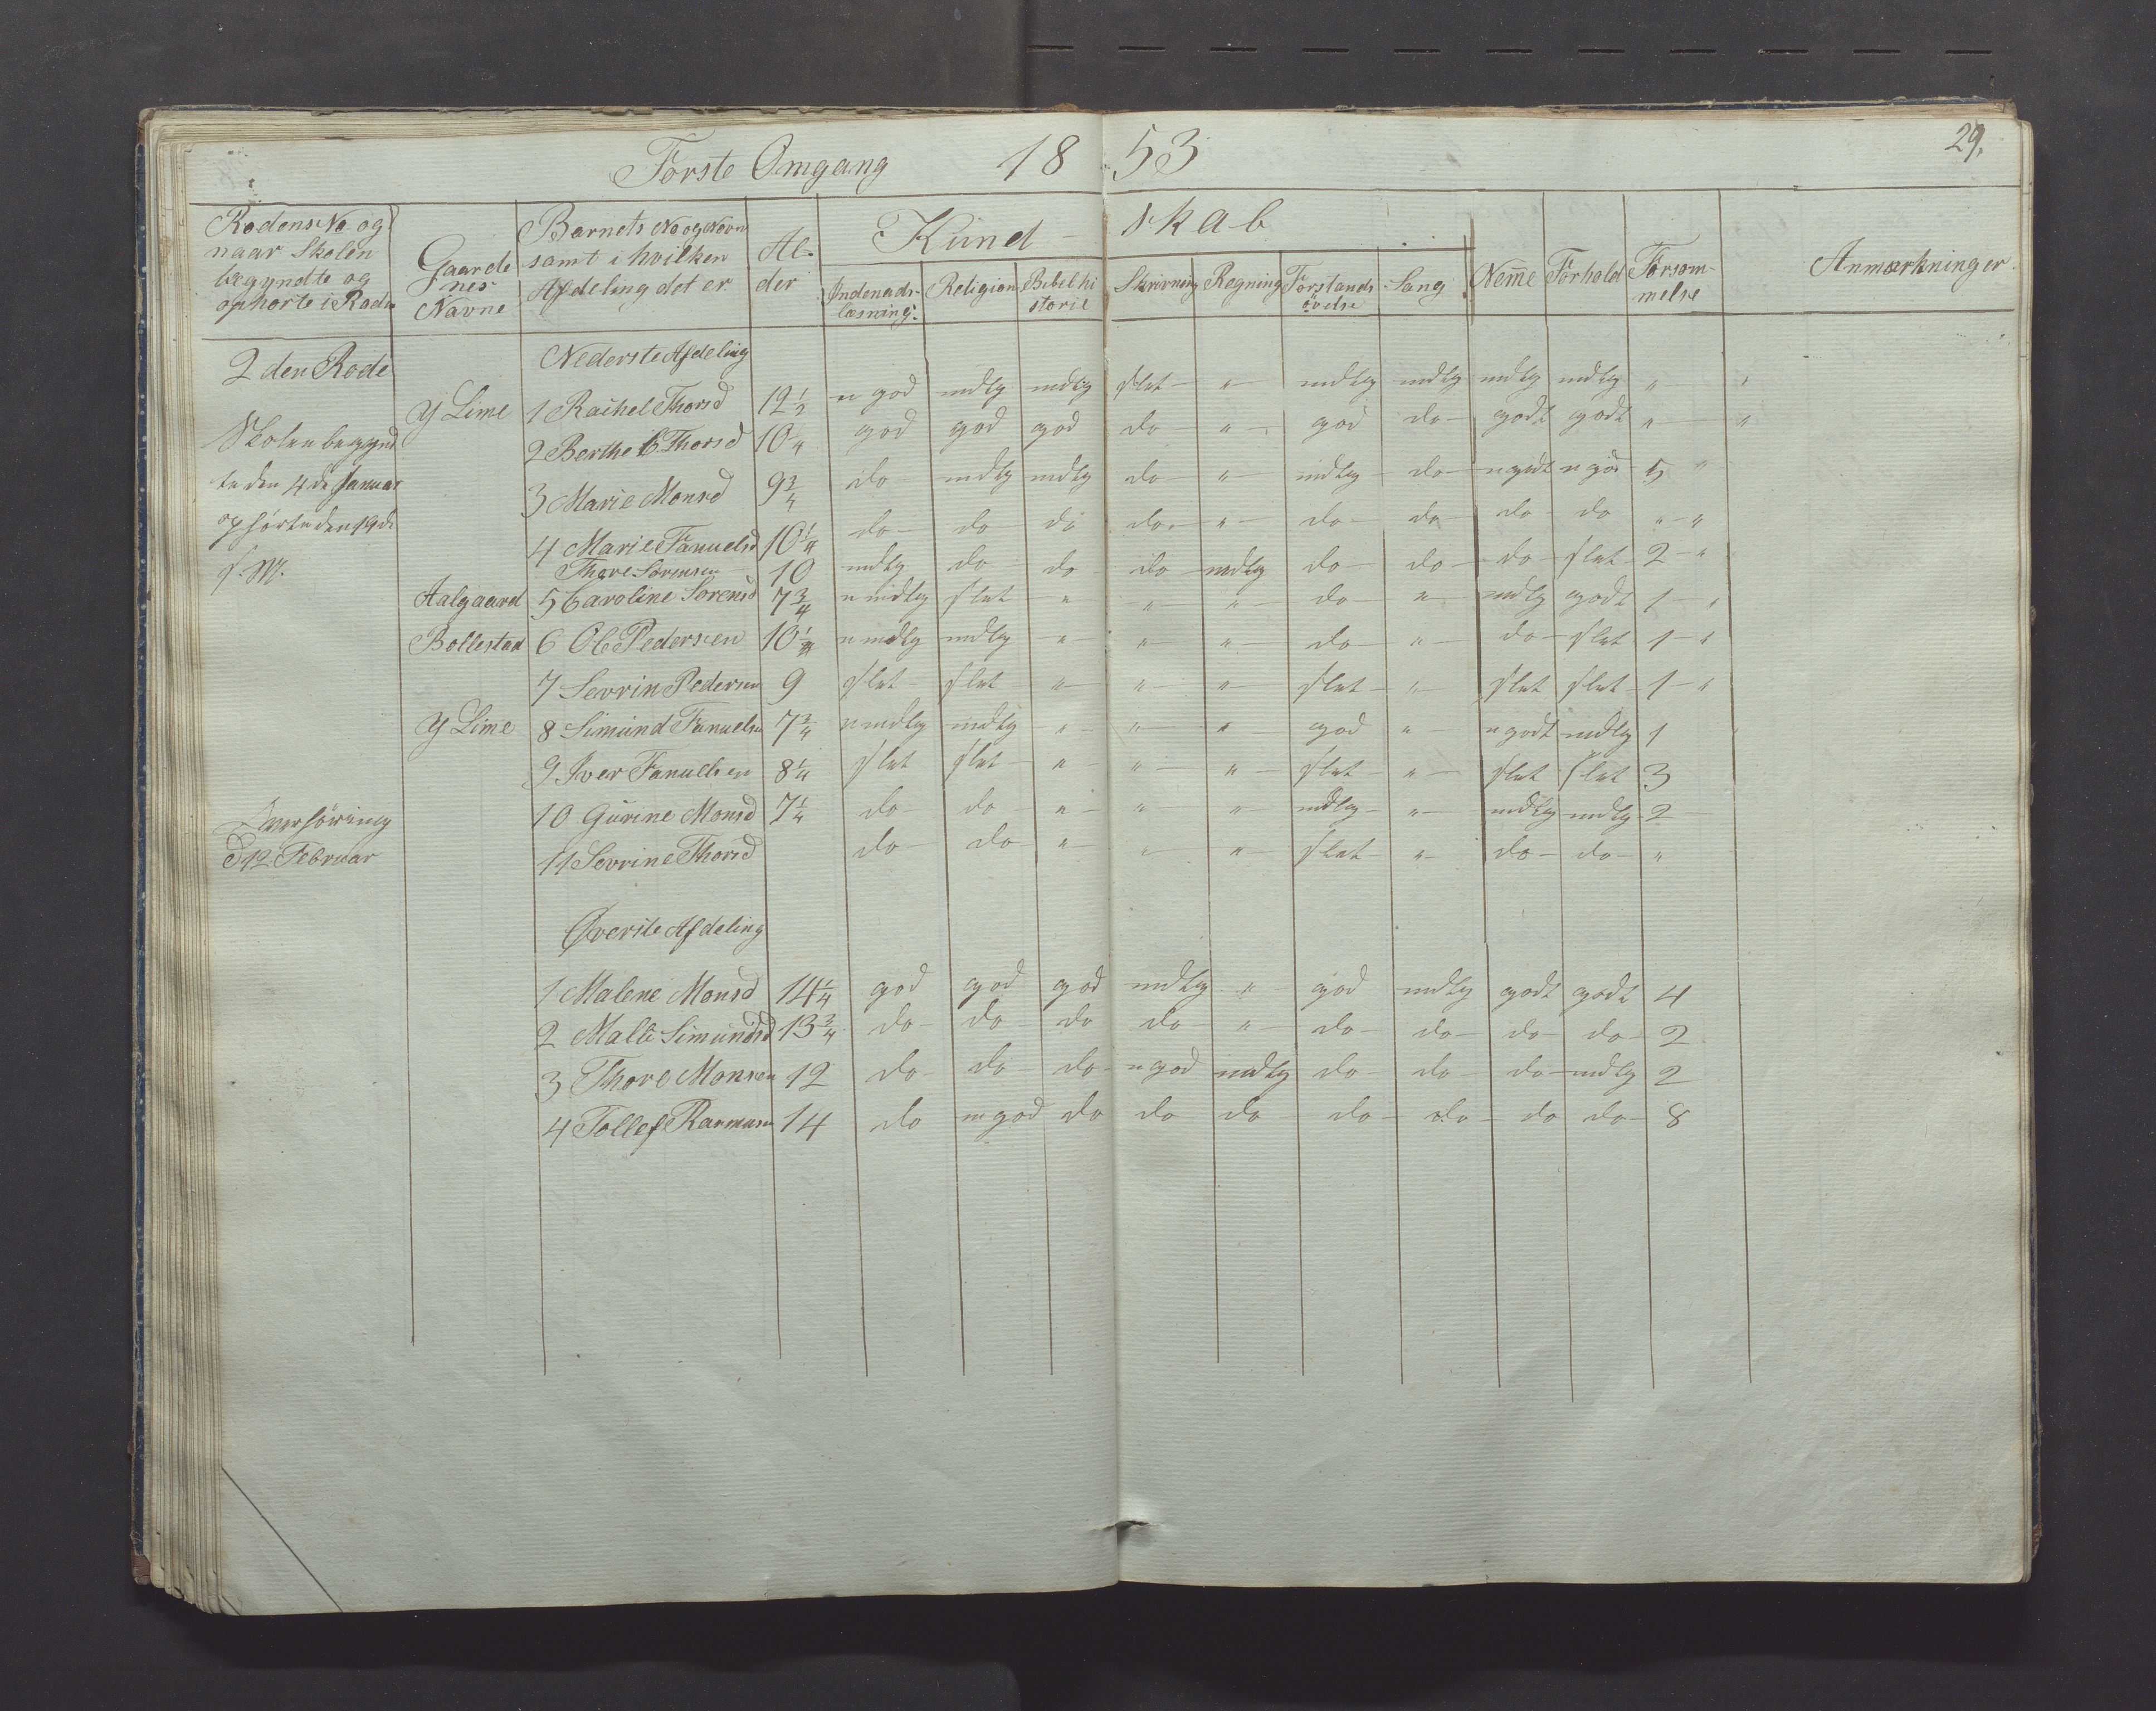 Första Omgang 18 53 29.
Rodens No og naar Skolen begyndte og ophørte i Rode
Gaarde nes Navne
Barnets No og Navn samt i hvilken Afdeling det er
Al- der
Kund skab
Indenads- læsning
Religion
Bibelhi storie
Skrivning
Regning
Forstands øvelse
Sang
Nem̅e
Forhold
Forsøm- melse
Anmærkninger
2den Rode Nederste Afdeling
Y Lime 1 Rachel Thorsd 12 1/2 n god mdlg mdlg slet " mdlg mdlg mdlg mdlg " "
Skolen begynd 2 Berthe C Thorsd 10 god god god do " god do godt godt " "
te den 4de Januar 3 Marie Monsd 9 3/4 do mdlg mdlg do " mdlg do n godt n godt 5 "
ophørte den 19de 4 Marie Fanuelsd 10 1/4 do do do do " do do do do " "
s. M. Thore Sørensen 10 mdlg do do do mdlg do do do slet 2 "
Aalgaard 5 Caroline Sorensd 7 3/4 n mdlg slet " " " do " mdlg godt 1 "
Bollestad 6 Ole Pedersen 10 n mdlg mdlg " " " do " do slet 1 "
7 Sevrin Pedersen 9 slet slet " " " slet " slet slet 1 "
Y Lime 8 Simund Fanuelsen 7 3/4 n mdlg mdlg " " " god " n godt mdlg 1
9 Iver Fanuelsen 8 1/4 slet slet " " " slet " slet slet 3
10 Gurine Monsd 7 1/4 do do " " " mdlg " mdlg mdlg 2
d 12 Februar 11 Sevrine Thorsd do do " " " slet " do do "
Øverste Afdeling
1 Malene Monsd 14 1/4 god god god mdlg " god mdlg godt godt 4
2 Male Simundsd 13 3/4 do do do do " do do do do 2
3 Thore Monsen 12 do do do n god mdlg do do do mdlg 2
4 Tollef Rasmusen 14 do n god do do do do do do do 8